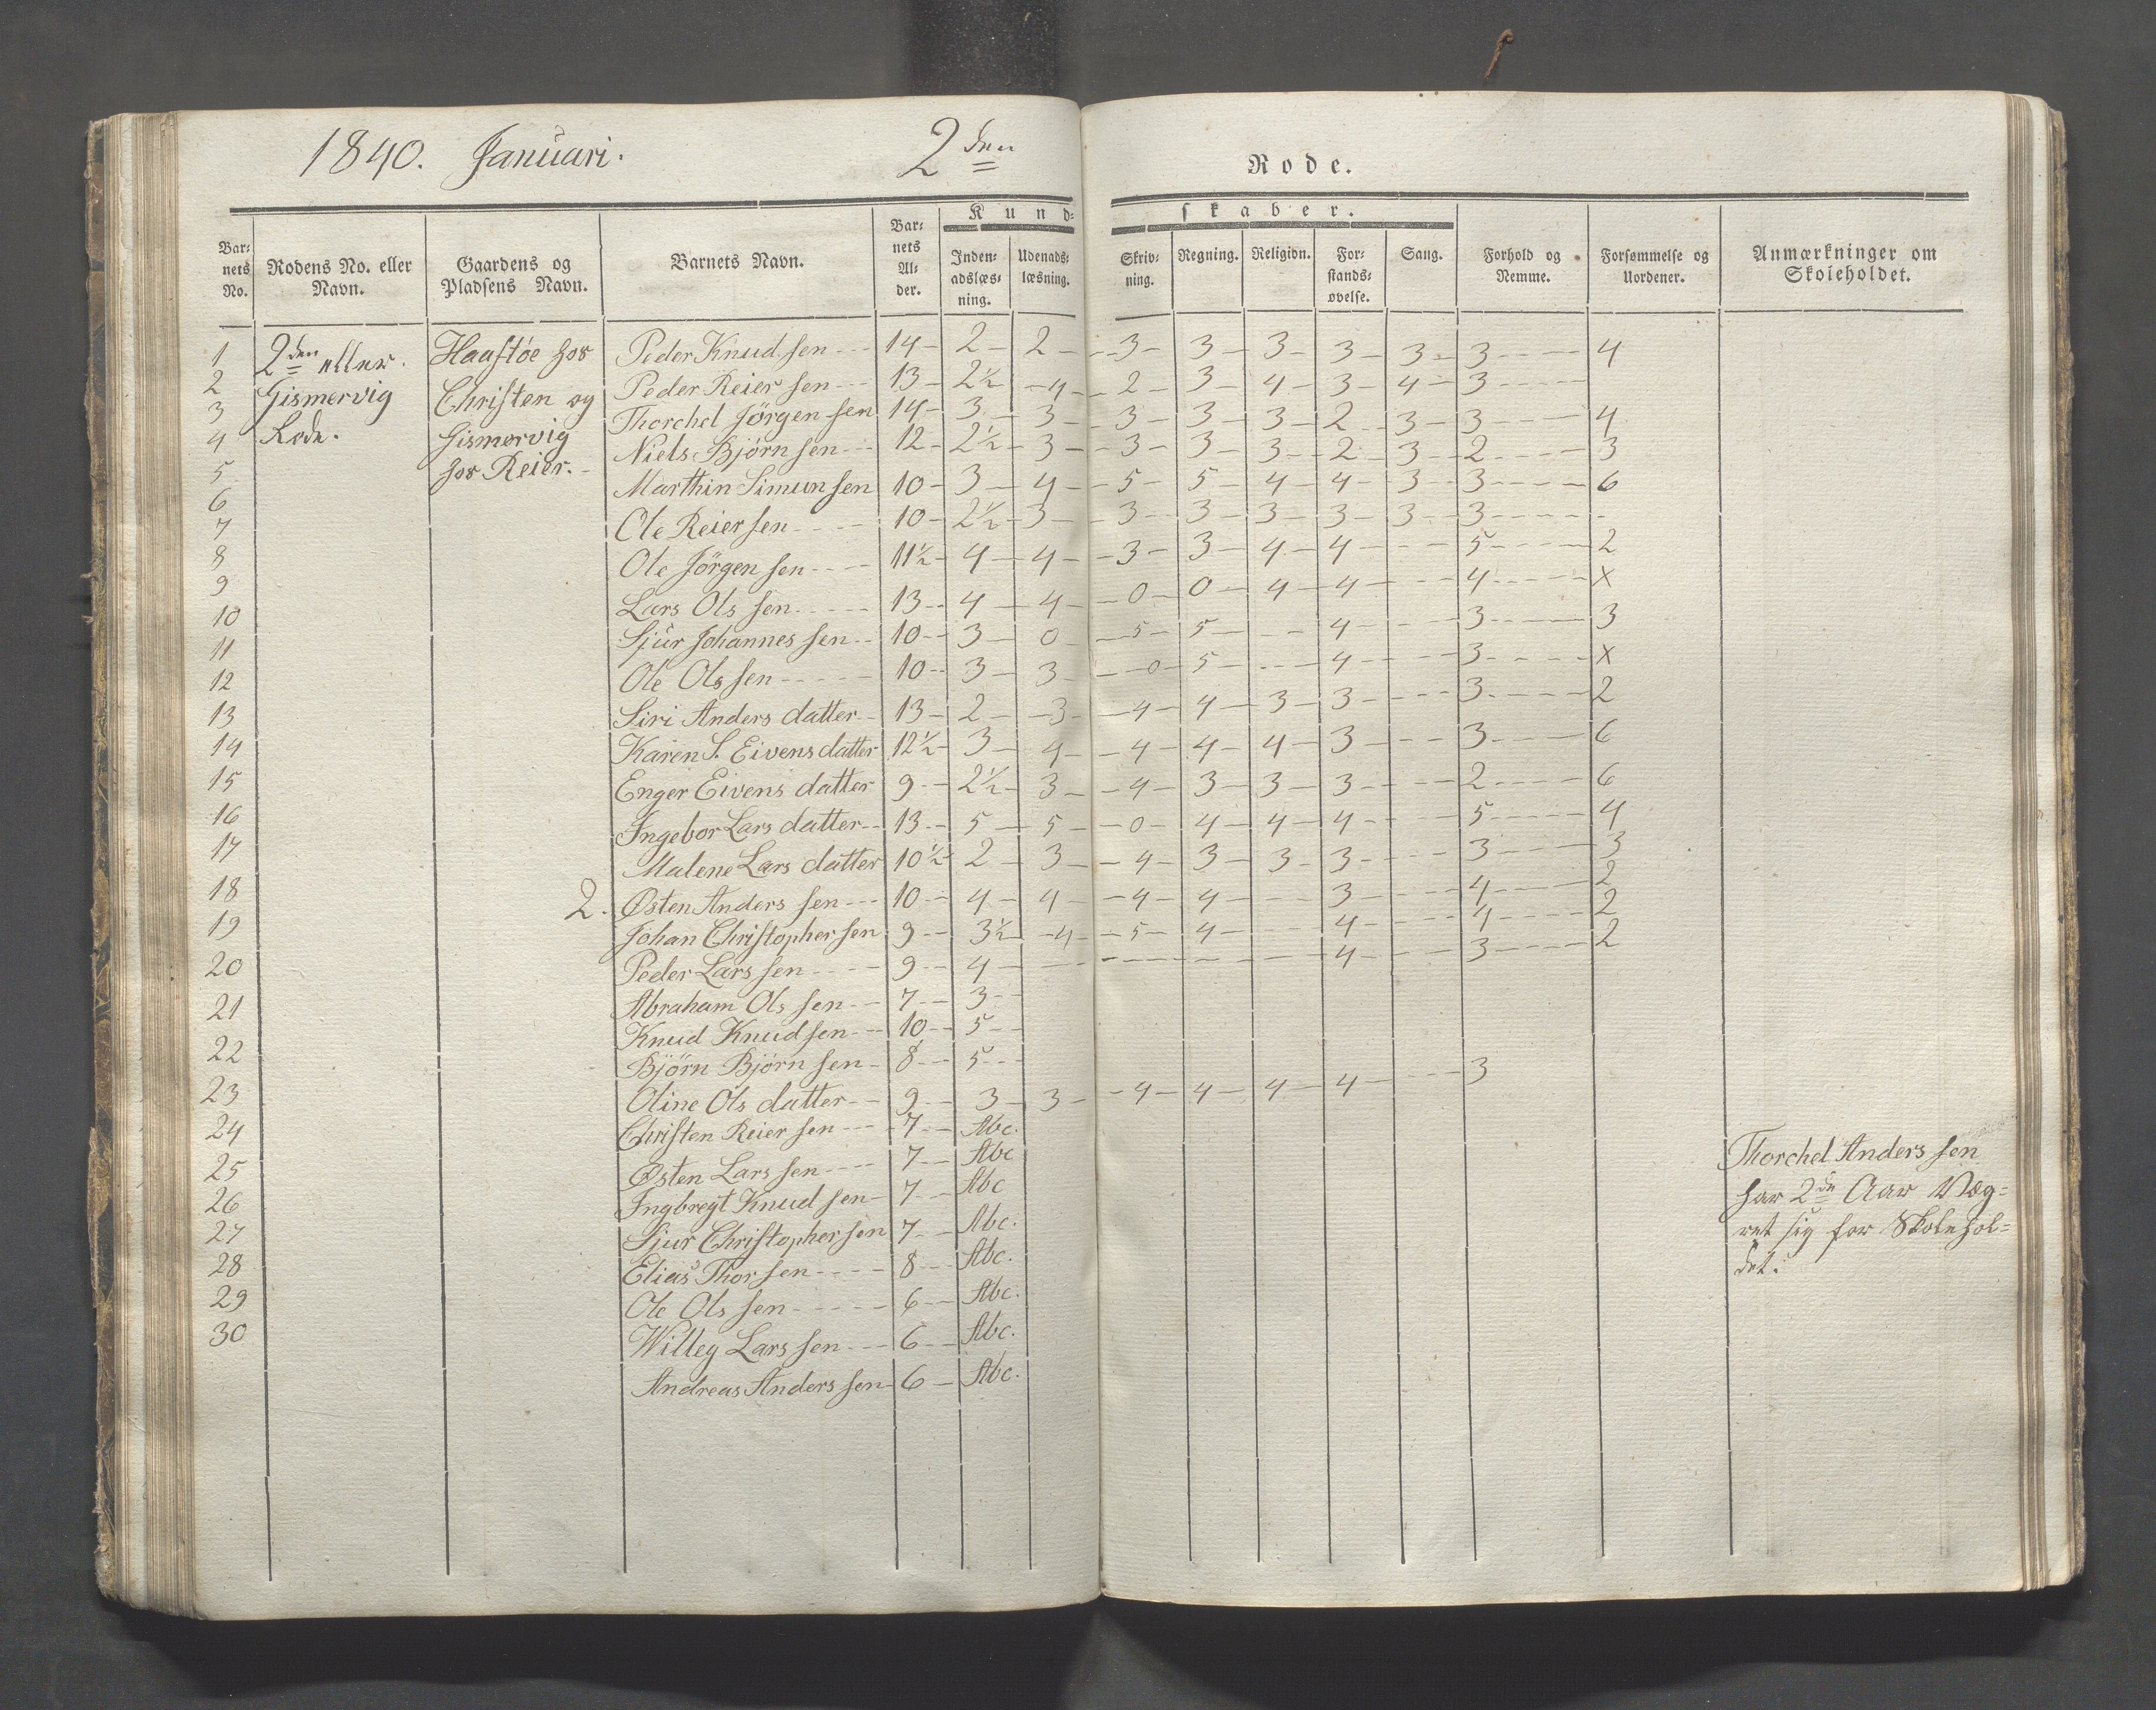 1840. Januari. 2den Rode.
Kund- skaber.
Bar- nets No. | Rodens No. eller Navn. | Gaardens og Pladsens Navn. | Barnets Navn. | Bar- nets Al- der. | Inden- adslæs- ning. | Udenads- læsning. | Skriv- ning. | Regning. | Religion. | For- stands- øvelse. | Sang. | Forhold og Nemme. | Forsømmelse og Uordener. | Anmærkninger om Skoleholdet.
1 2den eller Haaftöe hos Peder Knudsen 14 2 2 3 3 3 3 3 3 4
2 Gismervig Christen og Peder Reiersen 13 2½ 4 2 3 4 3 4 3
3 Rode. Gismervig Thorchel Jörgensen 14 3 3 3 3 3 2 3 3 4
4 hos Reier. Niels Björnsen 12 2½ 3 3 3 3 2 3 2 3
5 Marthin Simunsen 10 3 4 5 5 4 4 3 3 6
6 Ole Reiersen 10 2½ 3 3 3 3 3 3 3 -
7 Ole Jörgensen 11½ 4 4 3 3 4 4 - 5 2
8 Lars Olssen 13 4 4 0 0 4 4 - 4 x
9 Sjur Johannessen 10 3 0 5 5 - 4 - 3 3
10 Ole Olssen 10 3 3 0 5 - 4 - 3 x
11 Siri Andersdatter 13 2 3 4 4 3 3 - 3 2
12 Karen S. Eivensdatter 12½ 3 4 4 4 4 3 - 3 6
13 Enger Eivensdatter 9 2½ 3 4 3 3 3 - 2 6
14 Ingebor Larsdatter 13 5 5 0 4 4 4 - 5 4
15 Malene Larsdatter 10½ 2 3 4 3 3 3 - 3 3
16 2. Østen Anderssen 10 4 4 4 4 - 3 - 4 2
17 Johan Christophersen 9 3½ 4 5 4 - 4 - 4 2
18 Peder Larssen 9 4 - - - - 4 - 3 2
19 Abraham Olssen 7 3
20 Knud Knudsen 10 5
21 Björn Björnsen 8 5
22 Oline Olsdatter 9 3 3 4 4 4 4 - 3
23 Christen Reiersen 7 Abc.
24 Østen Larssen 7 Abc
25 Ingbregt Knudsen 7 Abc
26 Sjur Christophersen 7 Abc.
27 Elias Thorsen 8 Abc.
28 Ole Olssen 6 Abc.
29 Willeg Larssen 6 Abc.
30 Andreas Anderssen 6 Abc.
Thorchel Anderssen
har 2de Aar Væg-
ret sig for Skolehol-
det.